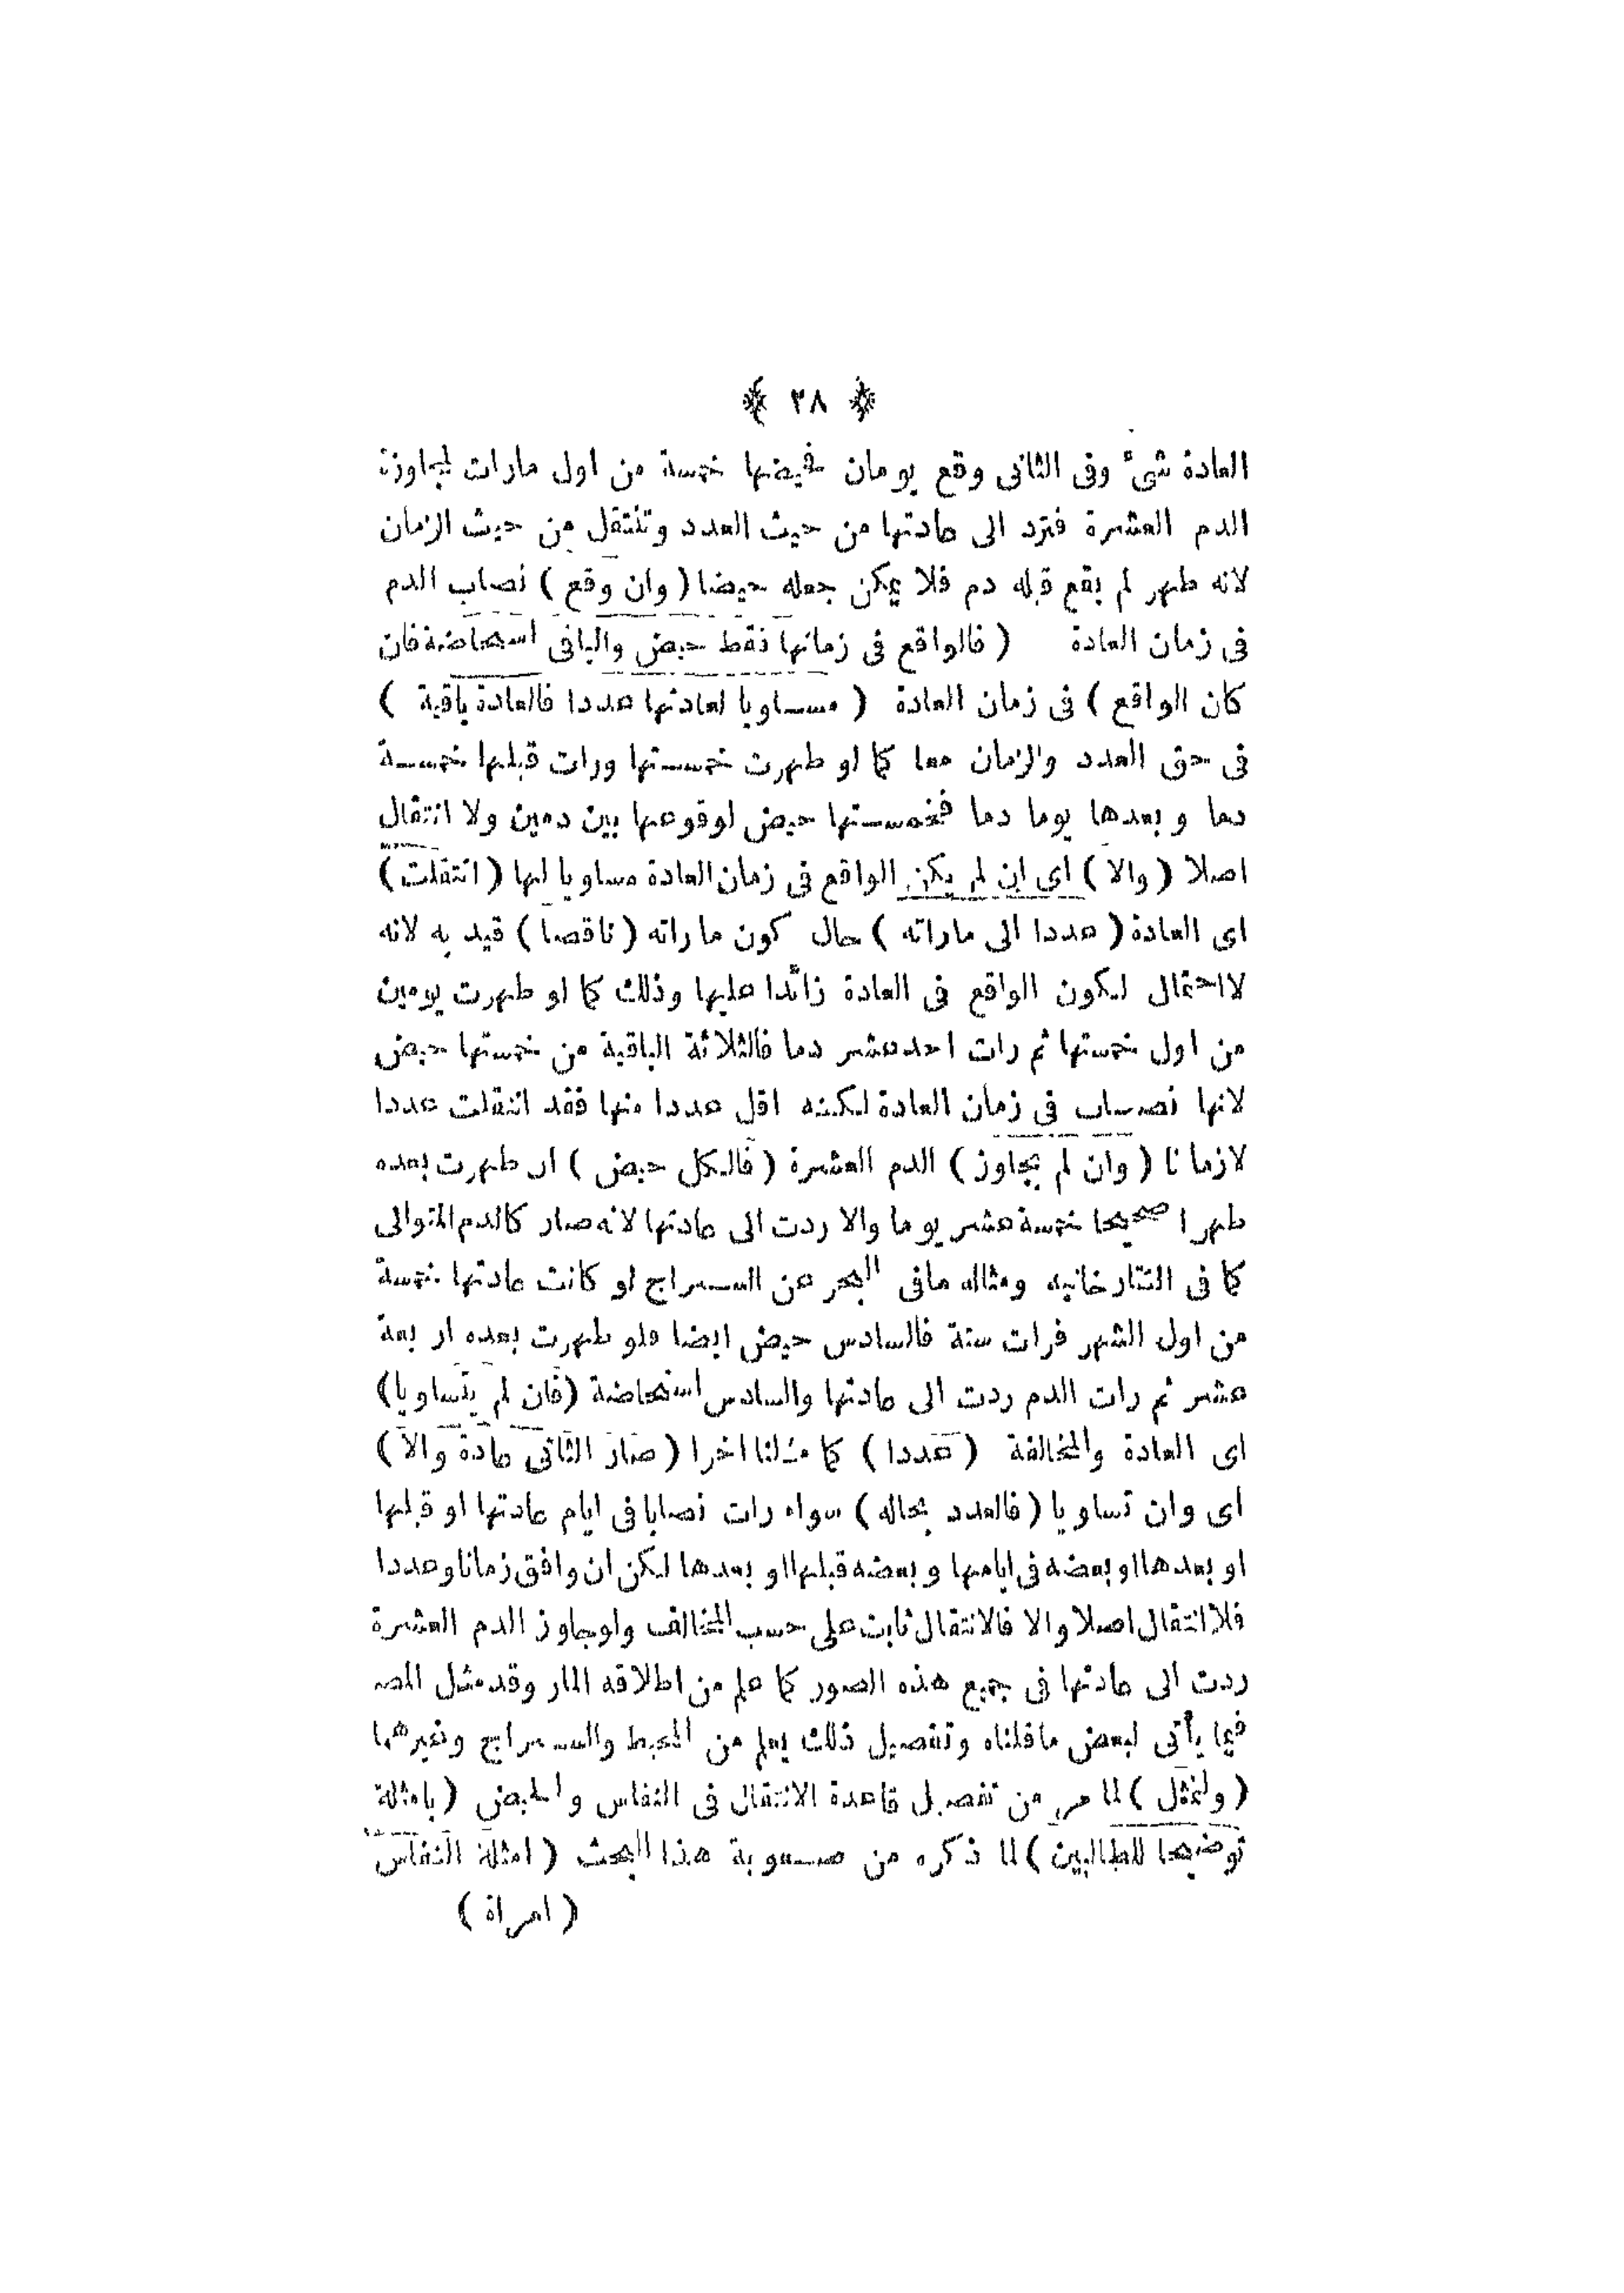 ﴿ ٢٨ ﴾
العادة شئ وفى الثانى وقع يومان فحيضها خمسة من اول مارات لمجاوزة
الدم العشرة فترد الى عادتها من حيث العدد وتنتقل من حيث الزمان
لانه طهر لم يقع قبله دم فلا يمكن جعله حيضا ( وان وقع ) نصاب الدم
فى زمان العادة ( فالواقع فى زمانها فقط حيض والباقى استحاضة فان
كان الواقع ) فى زمان العادة ( مساويا لعادتها عددا فالعادة باقية )
فى حق العدد والزمان معا كما لو طهرت خمستها ورات قبلها خمسة
دما وبعدها يوما دما فخمستها حيض لوقوعها بين دمين ولا انتقال
اصلا ( والا ) اى ان لم يكن الواقع فى زمان العادة مساويا لها ( انتقلت )
اى العادة ( عددا الى ماراته ) حال كون ماراته ( ناقصا ) قيد به لانه
لااحتمال لكون الواقع فى العادة زائدا عليها وذلك كما لو طهرت يومين
من اول خمستها ثم رات احد عشر دما فالثلاثة الباقية من خمستها حيض
لانها نصاب فى زمان العادة لكنه اقل عددا منها فقد انتقلت عددا
لازمانا ( وان لم يجاوز ) الدم العشرة ( فالكل حيض ) ان طهرت بعده
طهرا صحيحا خمسة عشر يوما والا ردت الى عادتها لانه صار كالدم المتوالى
كما فى التتارخانيه ومثاله مافى البحر عن السراج لو كانت عادتها خمسة
من اول الشهر فرات ستة فالسادس حيض ايضا فلو طهرت بعده اربعة
عشر ثم رات الدم ردت الى عادتها والسادس استحاضة ( فان لم يتساويا )
اى العادة والمخالفة ( عددا ) كما مثلنا اخرا ( صار الثانى عادة والا )
اى وان تساويا ( فالعدد بحاله ) سواء رات نصابا فى ايام عادتها او قبلها
او بعدها او بعضه فى ايامها وبعضه قبلها او بعدها لكن ان وافق زمانا وعددا
فلا انتقال اصلا والا فالانتقال ثابت على حسب المخالف ولو جاوز الدم العشرة
ردت الى عادتها فى جميع هذه الصور كما علم من اطلاقه المار وقد مثل المصـ
فيما يأتى لبعض ماقلناه وتفصيل ذلك يعلم من المحيط والسراج وغيرهما
( ولنمثل ) لما مر من تفصيل قاعدة الانتقال فى النفاس والحيض ( بامثلة
توضيحا للطالبين ) لما ذكره من صعوبة هذا البحث ( امثلة النفاس
( امراة )